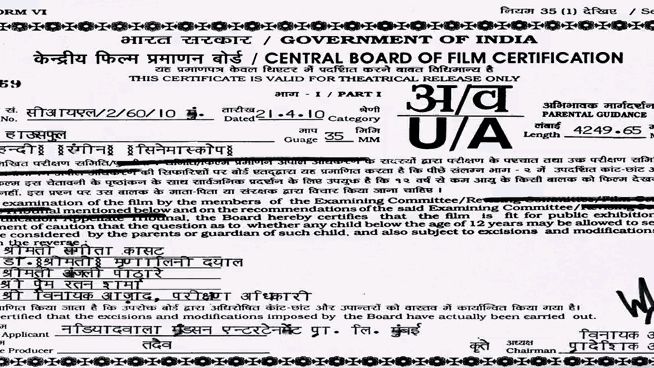 FORM VI नियम 35 (1) देखिए
भारत सरकार / GOVERNMENT OF INDIA
केन्द्रीय फिल्म प्रमाणन बोर्ड / CENTRAL BOARD OF FILM CERTIFICATION
यह प्रमाणपत्र केवल थिएटर में पदर्शित करने बाबत विधिमान्य है
THIS CERTIFICATE IS VALID FOR THEATRICAL RELEASE ONLY
भाग - I / PART I
सं. No. सीआयएल/2/60/10 तारीख Dated 21.4.10 श्रेणी Category अ/व U/A
अभिभावक मार्गदर्शन
PARENTAL GUIDANCE
लंबाई Length 4249.65
हाउसफुल
माप Guage 35 मिमि MM
रंगीन सिनेमास्कोप
के सदस्यों द्वारा परीक्षण के पश्चात तथा उक्त परीक्षण
examination of the film by the members of the Examining Committee/
mentioned below and on the recommendations of the said Examining Committee/
the Board hereby certifies that the film is fit for public
ment of caution that the question as to whether any child below the age of 12 years may allowed to
be considered by the parents or guardian of such child, and also subject to excisions and
n the reverse
श्रीमती संगीता कासट
डा. श्रीमती मृणालिनी दयाल
श्रीमती अंजली पाठारे
श्री प्रेम रतन शर्मा
श्री विनायक आज़ाद, परीक्षण अधिकारी
किया जाता है कि उपरोक्त बोर्ड द्वारा अधिरोपित कांट-छांट और उपान्तरों को वास्तव में कार्यान्वित किया गया है।
certified that the excisions and modifications imposed by the Board have actually been carried out.
Applicant नडियादवाला ग्रॅंडसन एन्टरटेनमेंट प्रा. लि. मुंबई
Producer तदैव
कृते अध्यक्ष Chairman विनायक
प्रादेशिक